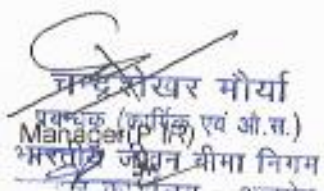 चन्द्रशेखर मौर्या
प्रबन्धक (कार्मिक एवं औ.स.)
Manager(P IR)
भारतीय जीवन बीमा निगम